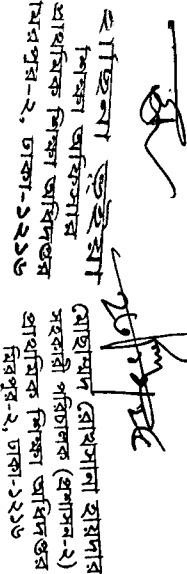 শিক্ষা অফিসার
প্রাথমিক শিক্ষা অধিদপ্তর
মিরপুর-২, ঢাকা-১২১৬
রোখসানা হায়দার
সহকারী পরিচালক (প্রশাসন-২)
প্রাথমিক শিক্ষা অধিদপ্তর
মিরপুর-২, ঢাকা-১২১৬